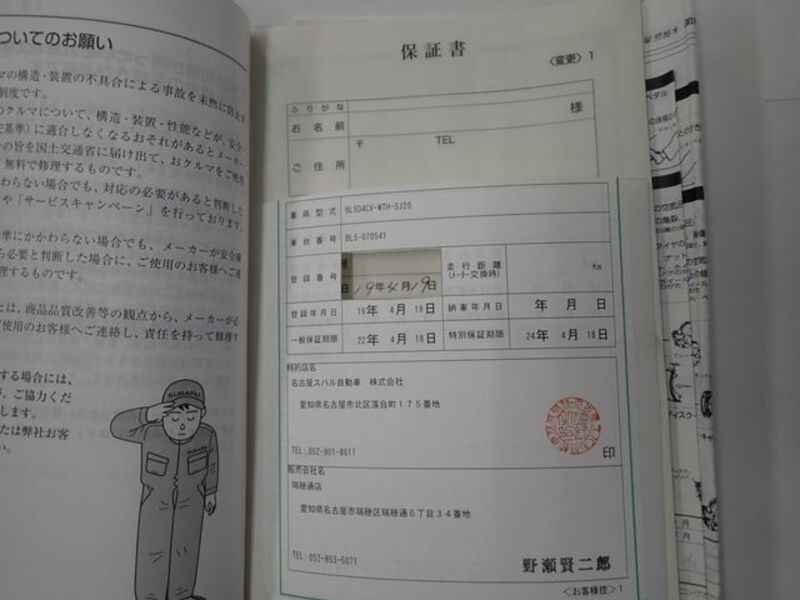 ついてのお願い
マの構造・装置の不具合による事故を未然に防止す
制度です。
のクルマについて、構造・装置・性能などが、安全
基準)に適合しなくなるおそれがあるとメーカー
の旨を国土交通省に届け出て、おクルマをご使用
無料で修理するものです。
わらない場合でも、対応の必要があると判断した
や「サービスキャンペーン」を行っております。
準にかかわらない場合でも、メーカーが安全確
ら必要と判断した場合に、ご使用のお客様へご連
理するものです。
とは、商品品質改善等の観点から、メーカーが必
使用のお客様へご連絡し、責任を持って修理す
する場合には、
が、ご協力くだ
します。
たは弊社お客
い。
SUBARU
保証書
〈変更〉1
ふりがな
お名前
様
ご住所
〒
TEL
車両型式 BL5D4CV-WTH-SJ20
車台番号 BL5-070541
登録番号
号
19年4月19日
走行距離
(メーター交換時)
Km
登録年月日 19年 4月 19日 納車年月日 年 月 日
一般保証期限 22年 4月 18日 特別保証期限 24年 4月 18日
特約店名
名古屋スバル自動車 株式会社
愛知県名古屋市北区落合町175番地
TEL:052-901-8611
印
販売会社名
瑞穂通店
愛知県名古屋市瑞穂区瑞穂通6丁目34番地
TEL:052-853-5071
野瀬賢二郎
〈お客様控〉1
ペダル
ナット
ディスク